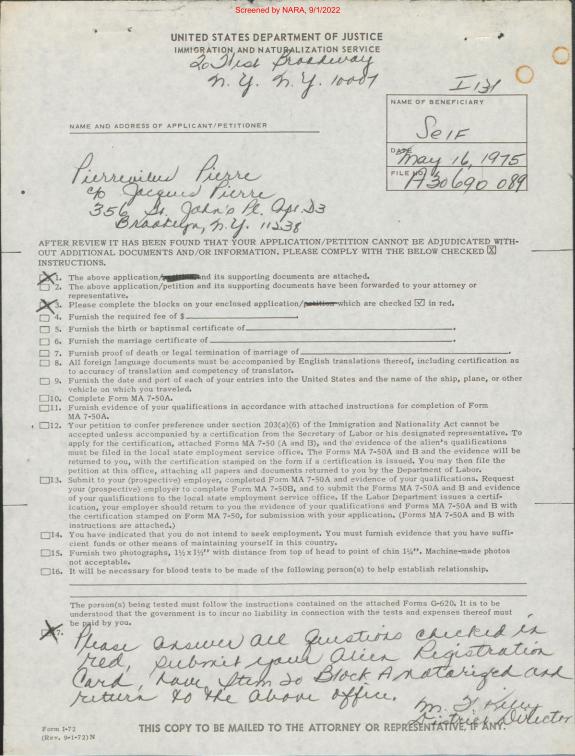 Screened by NARA, 9/1/2022
UNITED STATES DEPARTMENT OF JUSTICE
IMMIGRATION AND NATURALIZATION SERVICE
20 West Broadway
N.Y. N.Y. 10007
I 131
NAME OF BENEFICIARY
Self
DATE
May 16, 1975
FILE NO.
A30 690 089
NAME AND ADDRESS OF APPLICANT/PETITIONER
Pierrevilus Pierre
c/o Jacques Pierre
356 St. John's Pl. Apt. D3
Brooklyn, N.Y. 11238
AFTER REVIEW IT HAS BEEN FOUND THAT YOUR APPLICATION/PETITION CANNOT BE ADJUDICATED WITH-
OUT ADDITIONAL DOCUMENTS AND/OR INFORMATION. PLEASE COMPLY WITH THE BELOW CHECKED X
INSTRUCTIONS.
1. The above application/ and its supporting documents are attached.
2. The above application/petition and its supporting documents have been forwarded to your attorney or
representative.
3. Please complete the blocks on your enclosed application/petition which are checked ☑ in red.
4. Furnish the required fee of $
5. Furnish the birth or baptismal certificate of
6. Furnish the marriage certificate of
7. Furnish proof of death or legal termination of marriage of
8. All foreign language documents must be accompanied by English translations thereof, including certification as
to accuracy of translation and competency of translator.
9. Furnish the date and port of each of your entries into the United States and the name of the ship, plane, or other
vehicle on which you traveled.
10. Complete Form MA 7-50A.
11. Furnish evidence of your qualifications in accordance with attached instructions for completion of Form
MA 7-50A.
12. Your petition to confer preference under section 203(a)(6) of the Immigration and Nationality Act cannot be
accepted unless accompanied by a certification from the Secretary of Labor or his designated representative. To
apply for the certification, attached Forms MA 7-50 (A and B), and the evidence of the alien's qualifications
must be filed in the local state employment service office. The Forms MA 7-50A and B and the evidence will be
returned to you, with the certification stamped on the form if a certification is issued. You may then file the
petition at this office, attaching all papers and documents returned to you by the Department of Labor.
13. Submit to your (prospective) employer, completed Form MA 7-50A and evidence of your qualifications. Request
your (prospective) employer to complete Form MA 7-50B, and to submit the Forms MA 7-50A and B and evidence
of your qualifications to the local state employment service office. If the Labor Department issues a certif-
ication, your employer should return to you the evidence of your qualifications and Forms MA 7-50A and B with
the certification stamped on Form MA 7-50, for submission with your application. (Forms MA 7-50A and B with
instructions are attached.)
14. You have indicated that you do not intend to seek employment. You must furnish evidence that you have suffi-
cient funds or other means of maintaining yourself in this country.
15. Furnish two photographs, 1½ x 1½" with distance from top of head to point of chin 1¼". Machine-made photos
not acceptable.
16. It will be necessary for blood tests to be made of the following person(s) to help establish relationship.
The person(s) being tested must follow the instructions contained on the attached Forms G-620. It is to be
understood that the government is to incur no liability in connection with the tests and expenses thereof must
be paid by you.
17. Please answer all questions checked in
red, submit your Alien Registration
Card, have Item 20 Block A notarized and
return to the above office.
District Director
Form I-72
(Rev. 9-1-72)N
THIS COPY TO BE MAILED TO THE ATTORNEY OR REPRESENTATIVE, IF ANY.